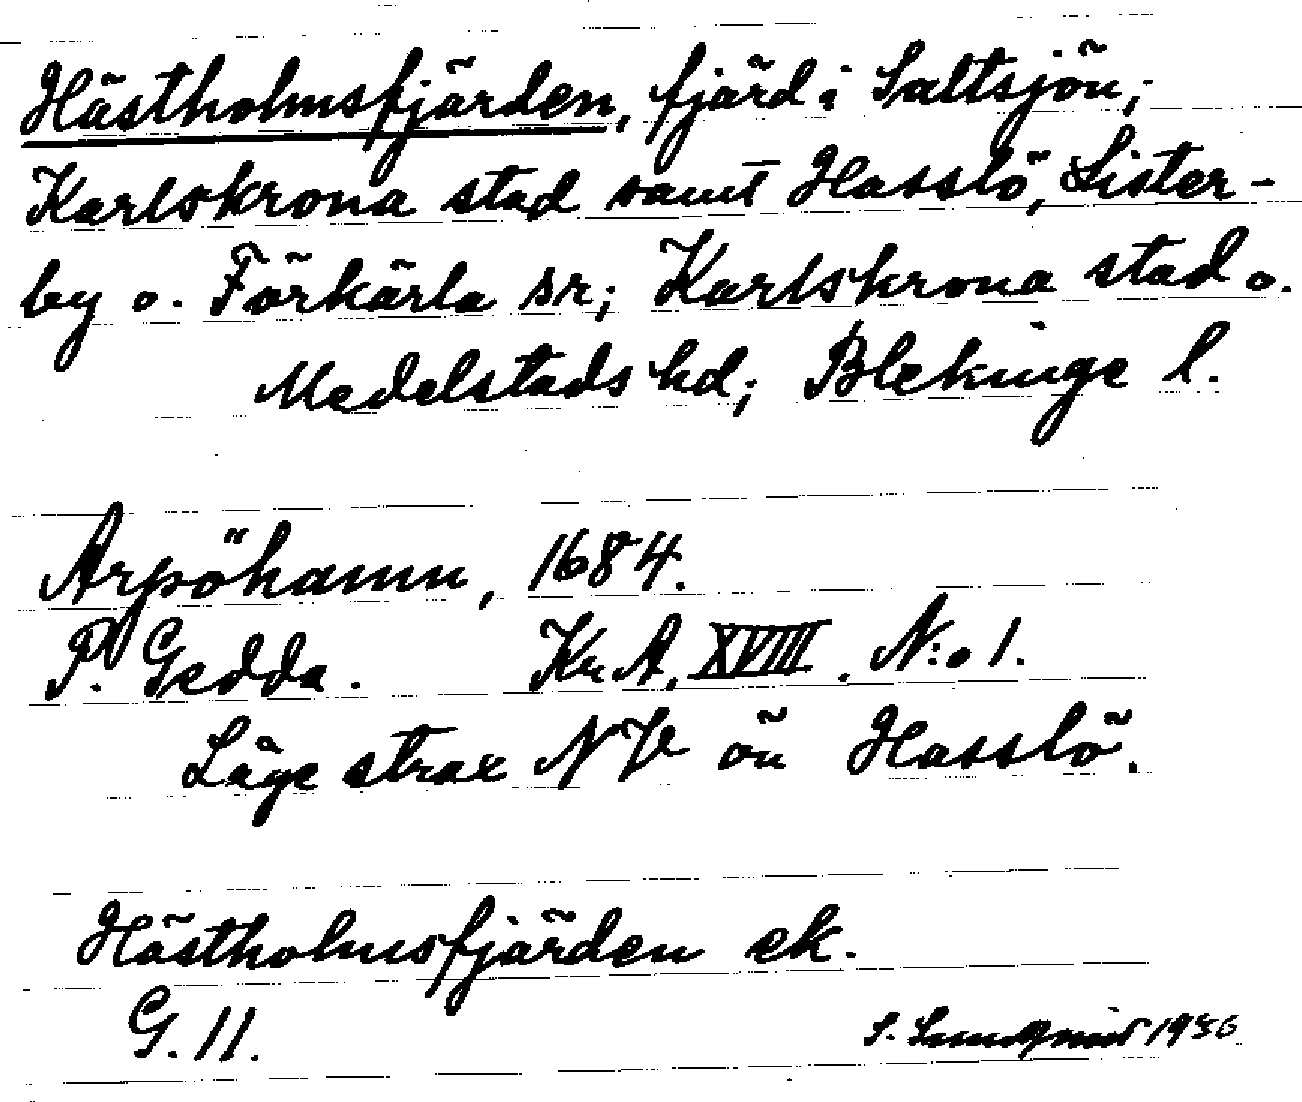 Hästholmsfjärden, fjärd i Saltsjön;
Karlskrona stad samt Hasslö, Lister-
by o. Förkärla sr; Karlskrona stad o.
Medelstads hd; Blekinge l.
Arpöhamn, 1684.
P. Gedda. Kr. A. XVIII. N:o 1.
Läge strax NV ön Hasslö.
Hästholmsfjärden ek.
G. 11.
S. Lundqvist 1936